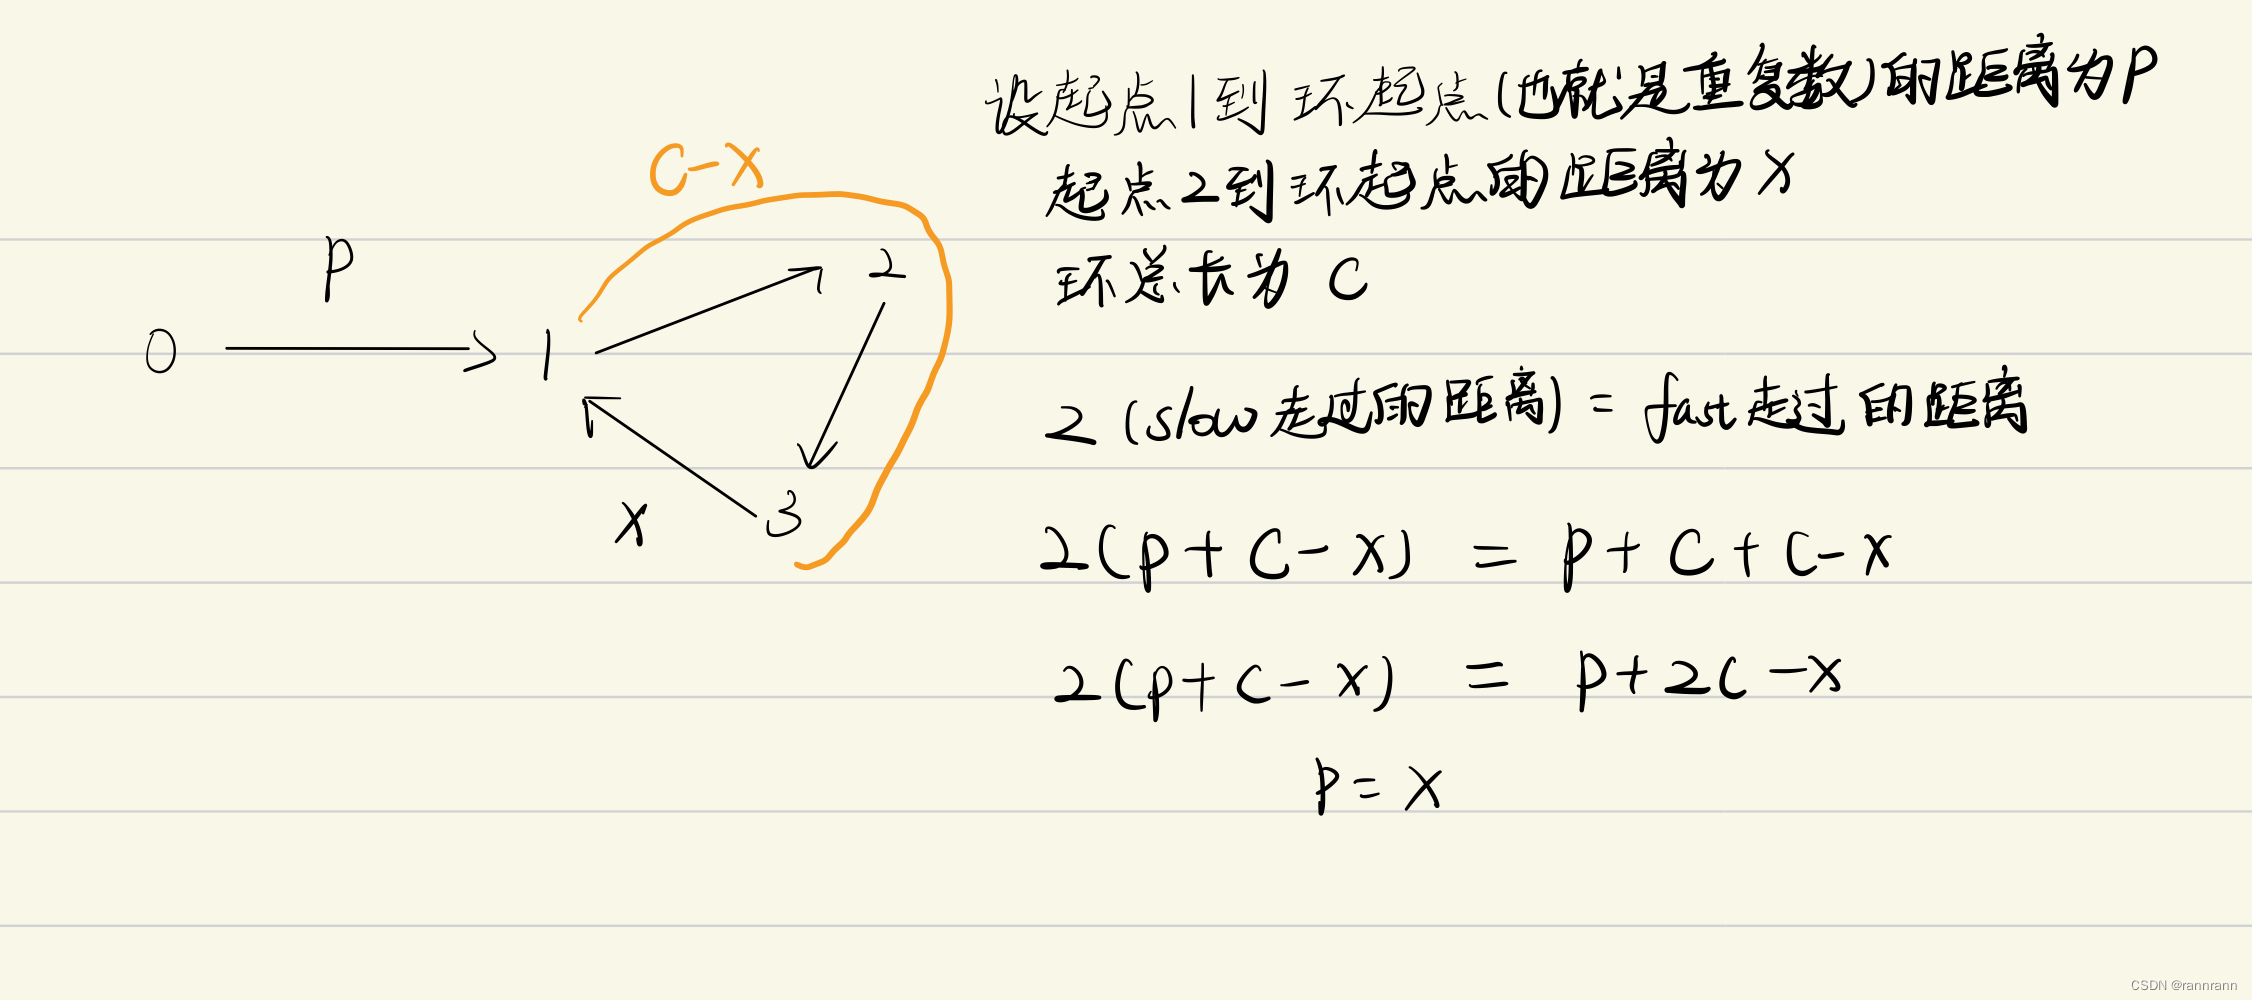 设起点1到环起点(也就是重复数)的距离为P
起点2到环起点的距离为X
环总长为 C
C-X
P
0
1
2
3
X
2 (slow走过的距离) = fast走过的距离
2(P + C - X) = P + C + C - X
2(P + C - X) = P + 2C - X
P = X
CSDN @rannrann